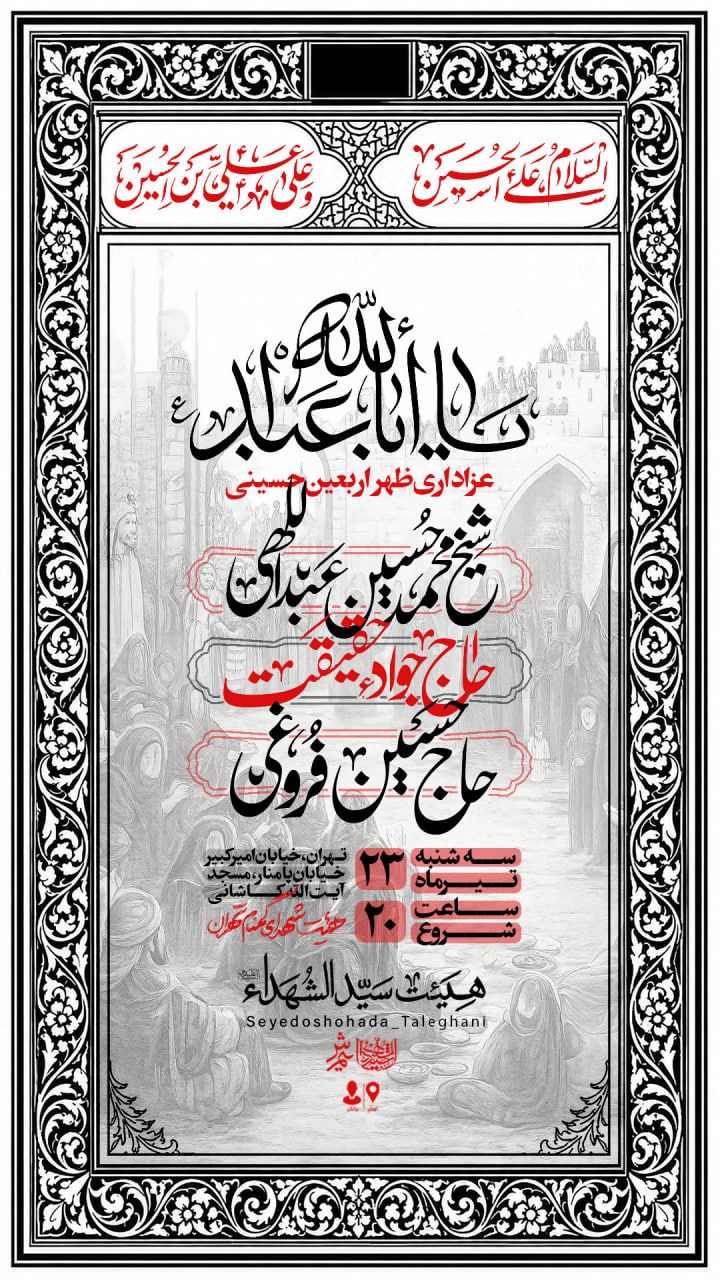 السلام علی الحسین
وعلی علی بن الحسین
یا اباعبدالله
عزاداری ظهر اربعین حسینی
شیخ محمدحسین عبداللهی
حاج جواد حقیقت
حاج حسین فروغی
سه شنبه
۲۳
تیرماه
ساعت
۲۰
شروع
تهران، خیابان امیرکبیر
خیابان پامنار، مسجد
آیت الله کاشانی
هیئت شهدای گمنام تهران
هیئت سید الشهداء
Seyedoshohada_Taleghani